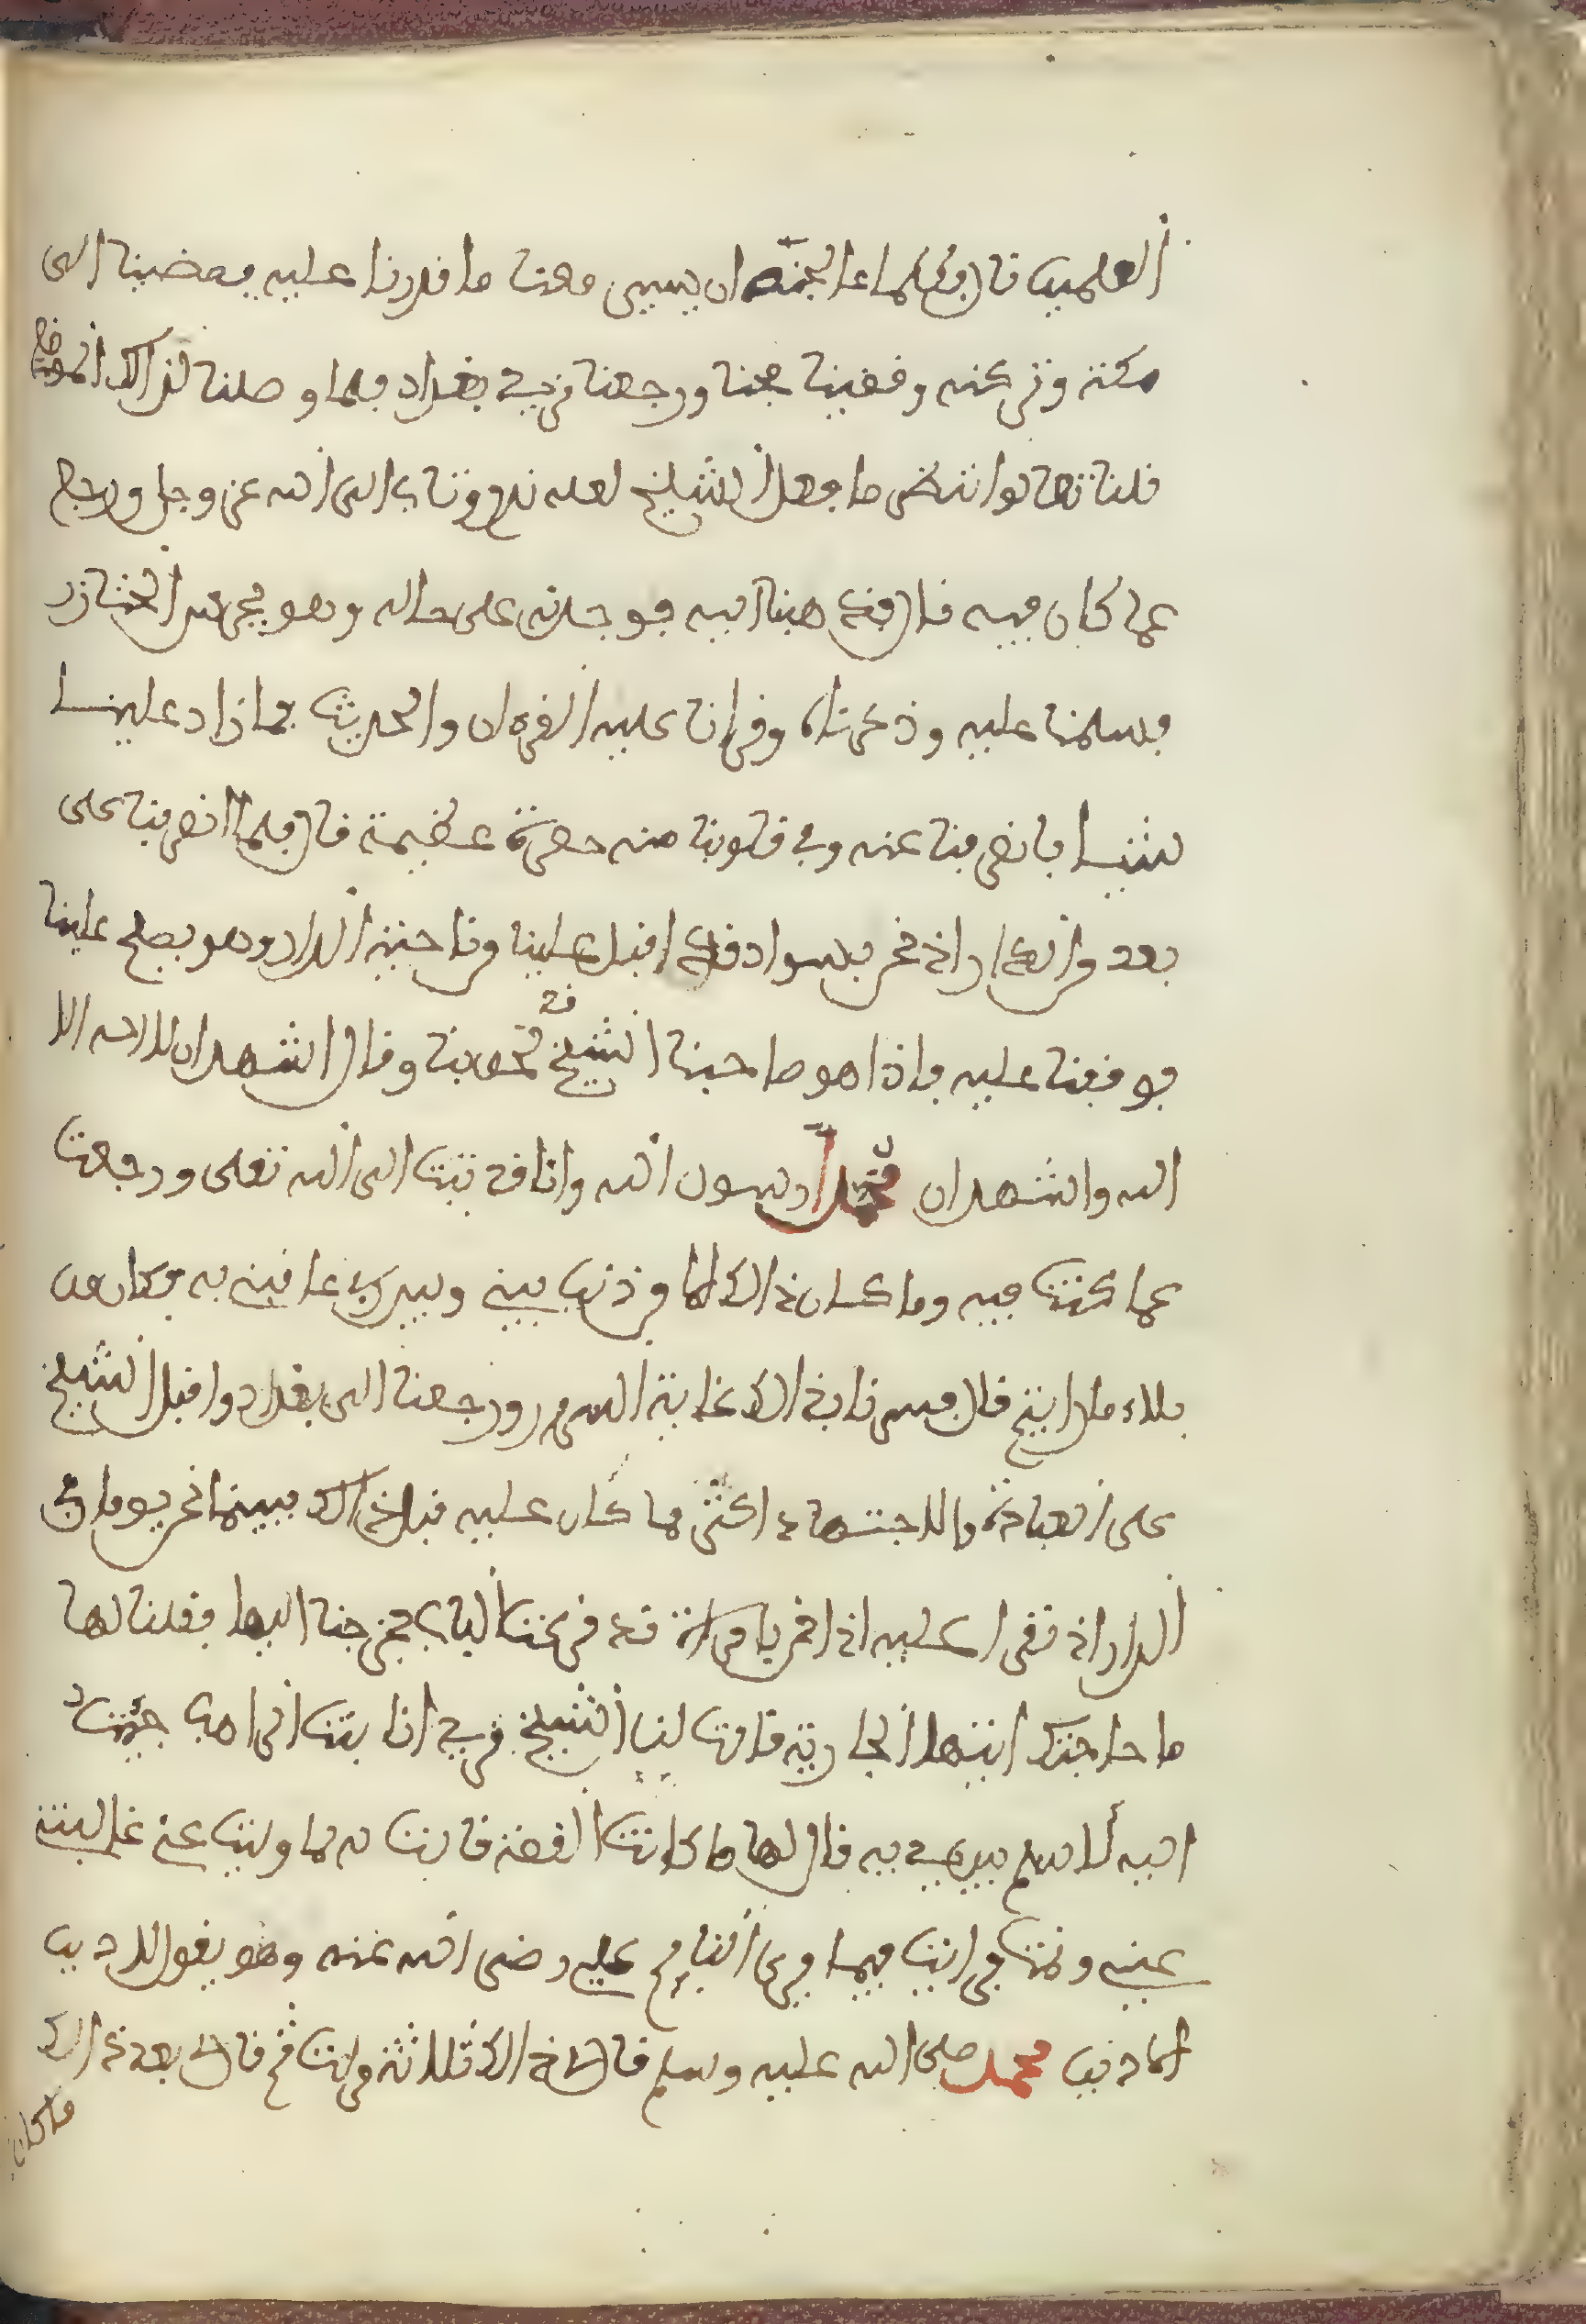 العلمين قال فكلما عالجنه ان يسير معنا ما قدرنا عليه فمضينا الى
مكة وتركنه وقضينا حجنا ورجعنا نريد بغداد فلما وصلنا لذالك الموضع
قلنا تعالوا ننظر ما فعل الشيخ لعله ندم وتاب الى الله عز وجل ورجع
عما كان فيه قال فذهبنا اليه فوجدنه على حاله وهو يرعى الخنازر
فسلمنا عليه وذكرناه وقرانا عليه القرءان والحديث فما زاد علينا
شيئا فانصرفنا عنه وفي قلوبنا منه حصرة عظيمة قال فلما انصرفنا على
بعد من الدار اذ نحن بسواد قد اقبل علينا من ناحية الدار وهو يصلح علينا
فوقفنا عليه فاذا هو صاحبنا الشيخ قد لحقنا وقال اشهد ان لا اله الا
الله واشهد ان محمدا رسول الله وانا قد تبت الى الله تعلى ورجعت
عما كنت فيه وما كان ذالك الا من ذنب بيني وبين ربي عاقبني به فكان من
بلاء ما رايتم قال فسرنا بذالك غاية السرور ورجعنا الى بغداد واقبل الشيخ
على العبادة والاجتهاد اكثر مما كان عليه قبل ذالك فبينما نحن يوما في
الدار اذ نقرا عليه اذا نحن بامراة قد قرعت الباب فخرجنا اليها فقلنا لها
ما حاجتك ايتها الجارية قالت لنا الشيخ نريد انا بنت الراهب جيت
اليه لاسلم بين يديه قال لها ما كانت القصة قالت له لما وليت عني غلبتني
عيني ونمت فرايت فيما يرى النايم علي رضى الله عنه وهو يقول لا دين
الا دين محمد صلى الله عليه وسلم قال ذالك ثلاثة مرات ثم قال بعد ذالك
ما كان